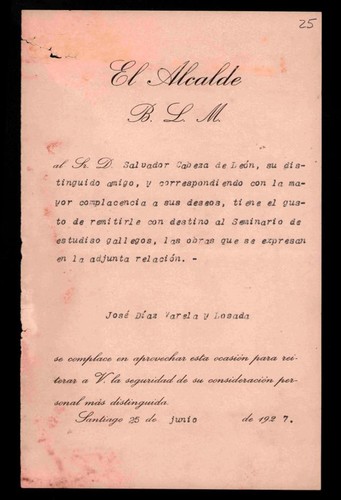 25
El Alcalde
B. L. M.
al Sr. D. Salvador Cabeza de León, su dis-
tinguido amigo, y correspondiendo con la ma-
yor complacencia a sus deseos, tiene el gus-
to de remitirle con destino al Seminario de
estudiso gallegos, las obras que se expresan
en la adjunta relación. -
José Díaz Varela y Losada
se complace en aprovechar esta ocasión para rei-
terar a V. la seguridad de su consideración per-
sonal más distinguida.
Santiago 25 de junio de 1927.